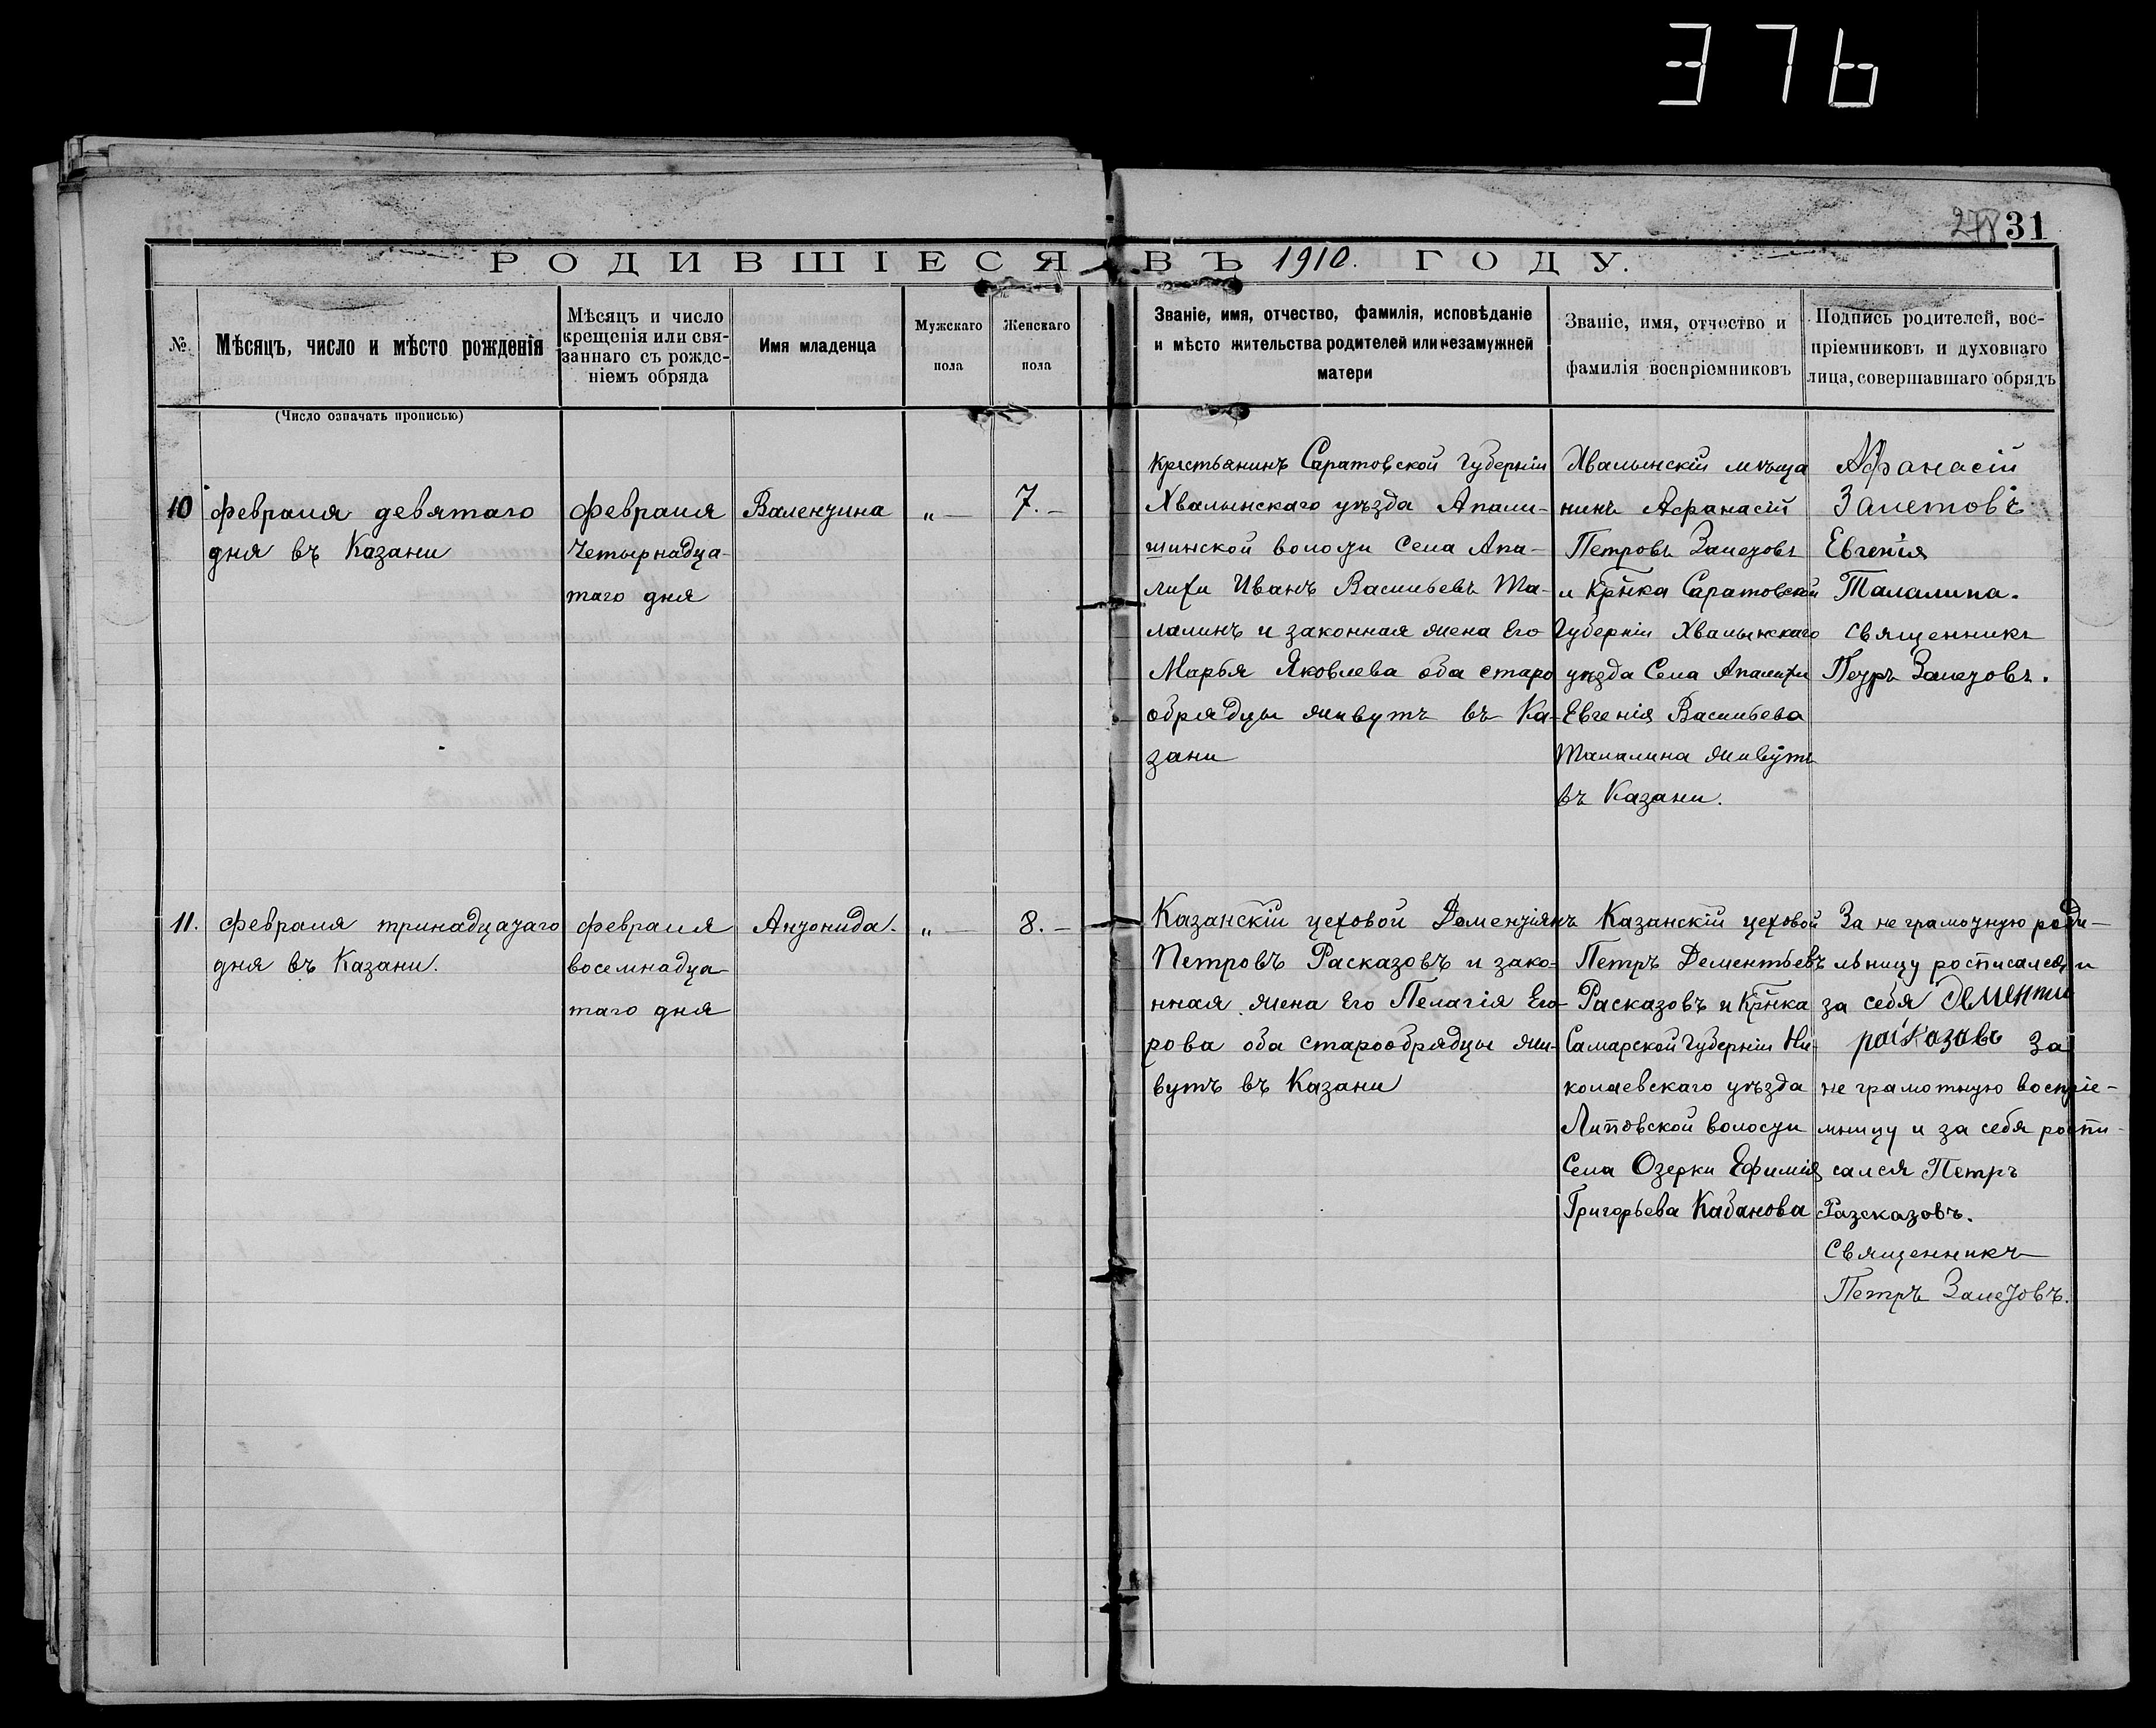 376
31
РОДИВШІЕСЯ ВЪ 1910. ГОДУ.
№
Мѣсяцъ, число и мѣсто рожденія
(Число означать прописью)
Мѣсяцъ и число
крещенія или свя-
заннаго съ рожде-
ніемъ обряда
Имя младенца
Мужскаго
пола
Женскаго
пола
Званіе, имя, отчество, фамилія, исповѣданіе
и мѣсто жительства родителей или незамужней
матери
Званіе, имя, отчество и
фамилія воспріемниковъ
Подпись родителей, вос-
пріемниковъ и духовнаго
лица, совершавшаго обрядъ
10
февраля девятаго
дня въ Казани
февраля
Четырнадца-
таго дня
Валентина
„ —
7. —
Крестьянинъ Саратовской Губерніи
Хвалынскаго уѣзда Апали-
шинской волости Села Апа-
лихи Иванъ Васильевъ Та-
лалинъ и законная жена Его
Марья Яковлева оба старо
обрядцы живутъ въ Ка-
зани
Хвалынскій мѣща
нинъ Афанасій
Петровъ Залетовъ
и Кр̃нка Саратовской
Губерніи Хвалынскаго
уѣзда Села Апалихи
Евгенія Васильева
Талалина живутъ
въ Казани.
Афанасій
Залетовъ
Евгенія
Талалина.
Священникъ
Петръ Залетовъ.
11.
февраля тринадцатаго
дня въ Казани.
февраля
восемнадца-
таго дня
Антонида.
„ —
8. —
Казанскій цеховой Дементіянъ
Петровъ Расказовъ и зако-
нная жена Его Пелагія Его-
рова оба старообрядцы жи-
вутъ въ Казани
Казанскій цеховой
Петръ Дементьевъ
Расказовъ и Кр̃нка
Самарской Губерніи Ни-
колаевскаго уѣзда
Липовской волости
Села Озерки Ефимія
Григорьева Кабанова
За не грамотную роди-
льницу росписался и
за себя Дементи
расказавъ За
не грамотную воспріе-
мницу и за себя роспи-
сался Петръ
Разсказовъ.
Священникъ
Петръ Залетовъ.